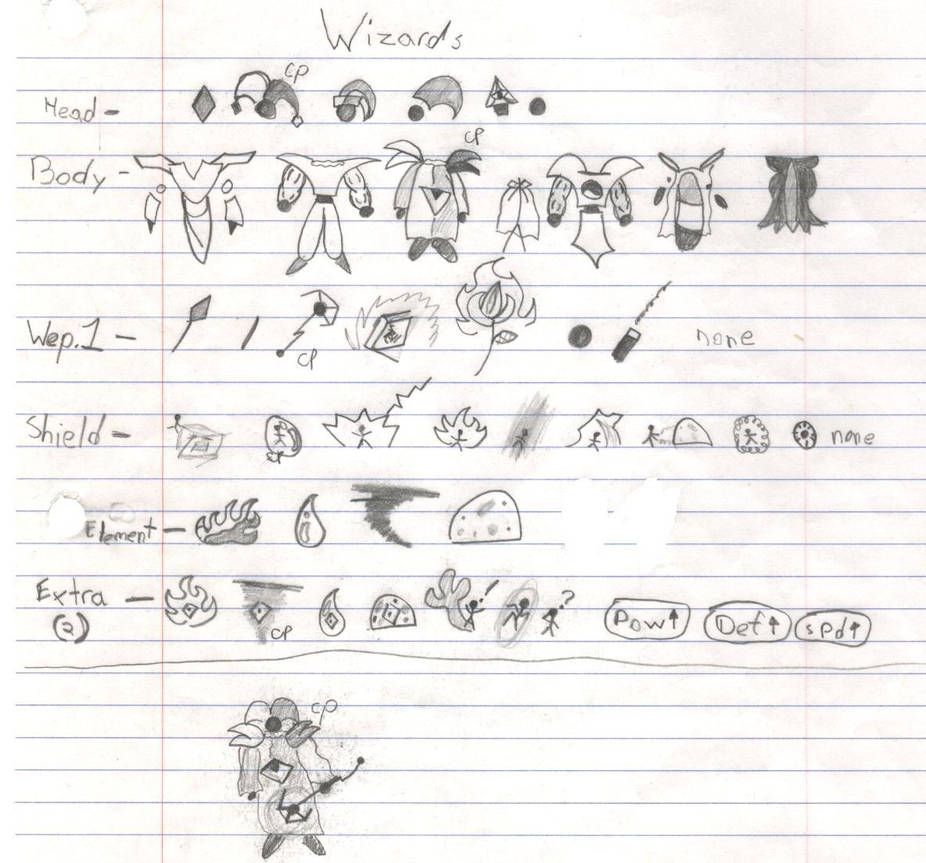 Wizards
Head - cp
Body - cp
Wep.1 - cp none
Shield - cp none
Element -
Extra - cp ! ? Pow↑ Def↑ spd↑
(2)
cp